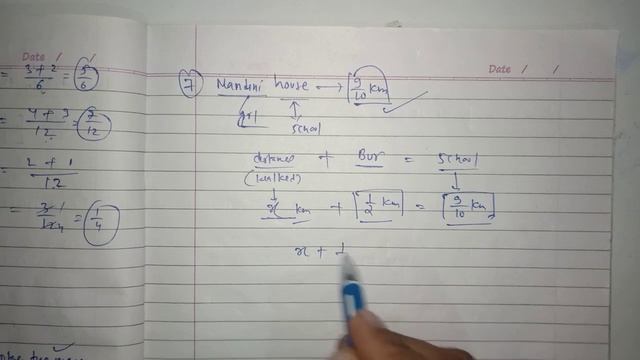 Date / /
= 3+2/6 = 5/6
= 4+3/12 = 7/12
= 2+1/12
= 3 1/12 4 = 1/4
Date / /
7 Nandni house → 9/10 km
girl
school
distance + Bus = school
(walked)
x km + 1/2 km = 9/10 km
x + 1